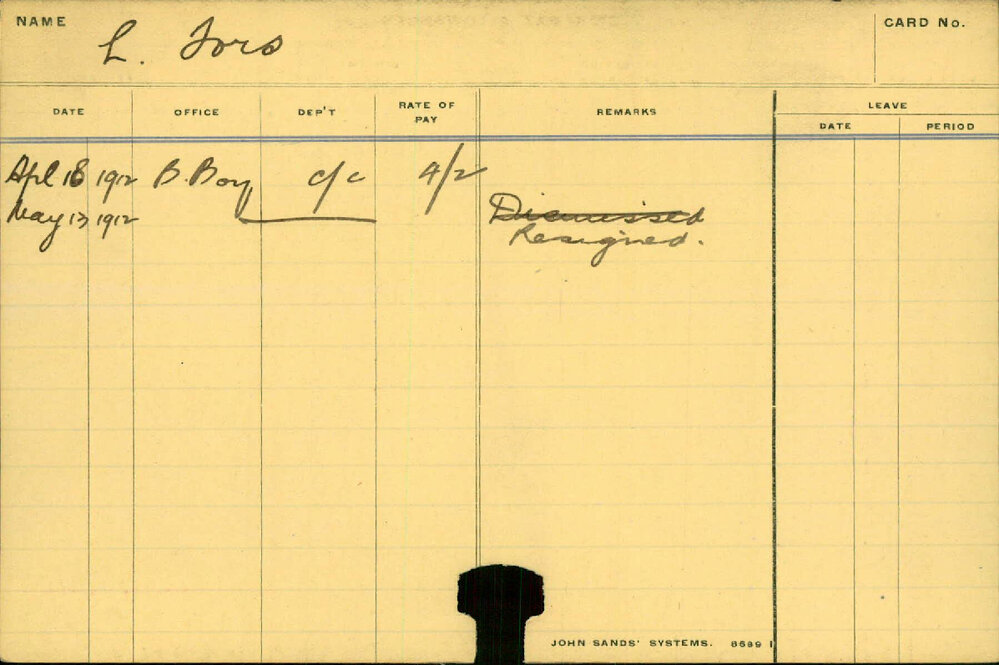 NAME L. Fors CARD No.
DATE OFFICE DEP'T RATE OF PAY REMARKS LEAVE
DATE PERIOD
Apl 18 1912 B. Boy c/c 4/2
May 13 1912 Dismissed
Resigned.
JOHN SANDS' SYSTEMS. 8689